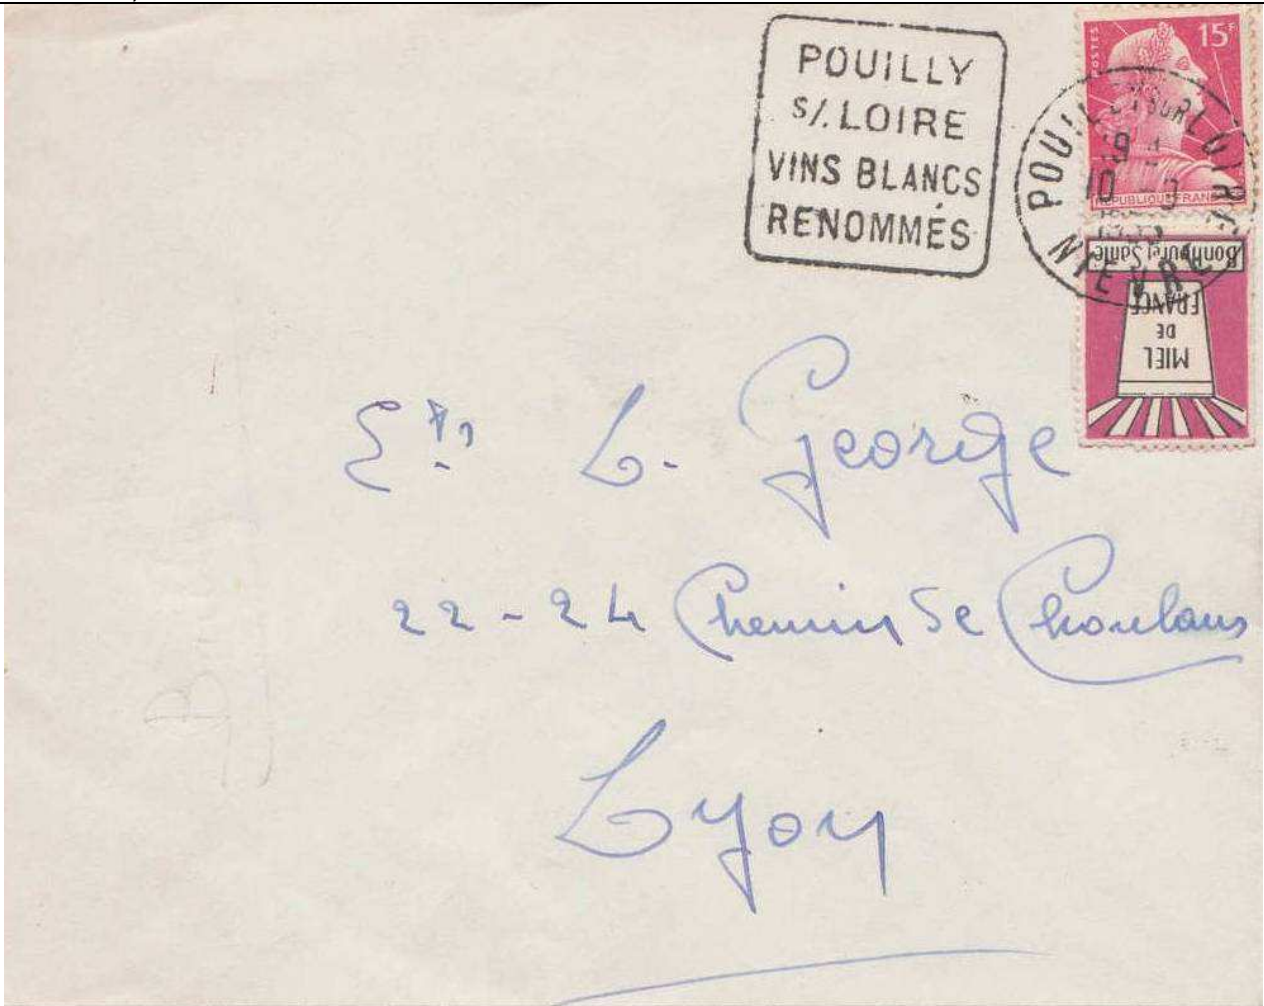 POUILLY
S/. LOIRE
VINS BLANCS
RENOMMÉS
15F
POSTES
REPUBLIQUE FRANÇAISE
POUILLY SUR LOIRE
10 - 
NIEVRE
Bonheur et Santé
MIEL
DE
FRANCE
Ets L. George
22-24 Chemin de Choulans
Lyon